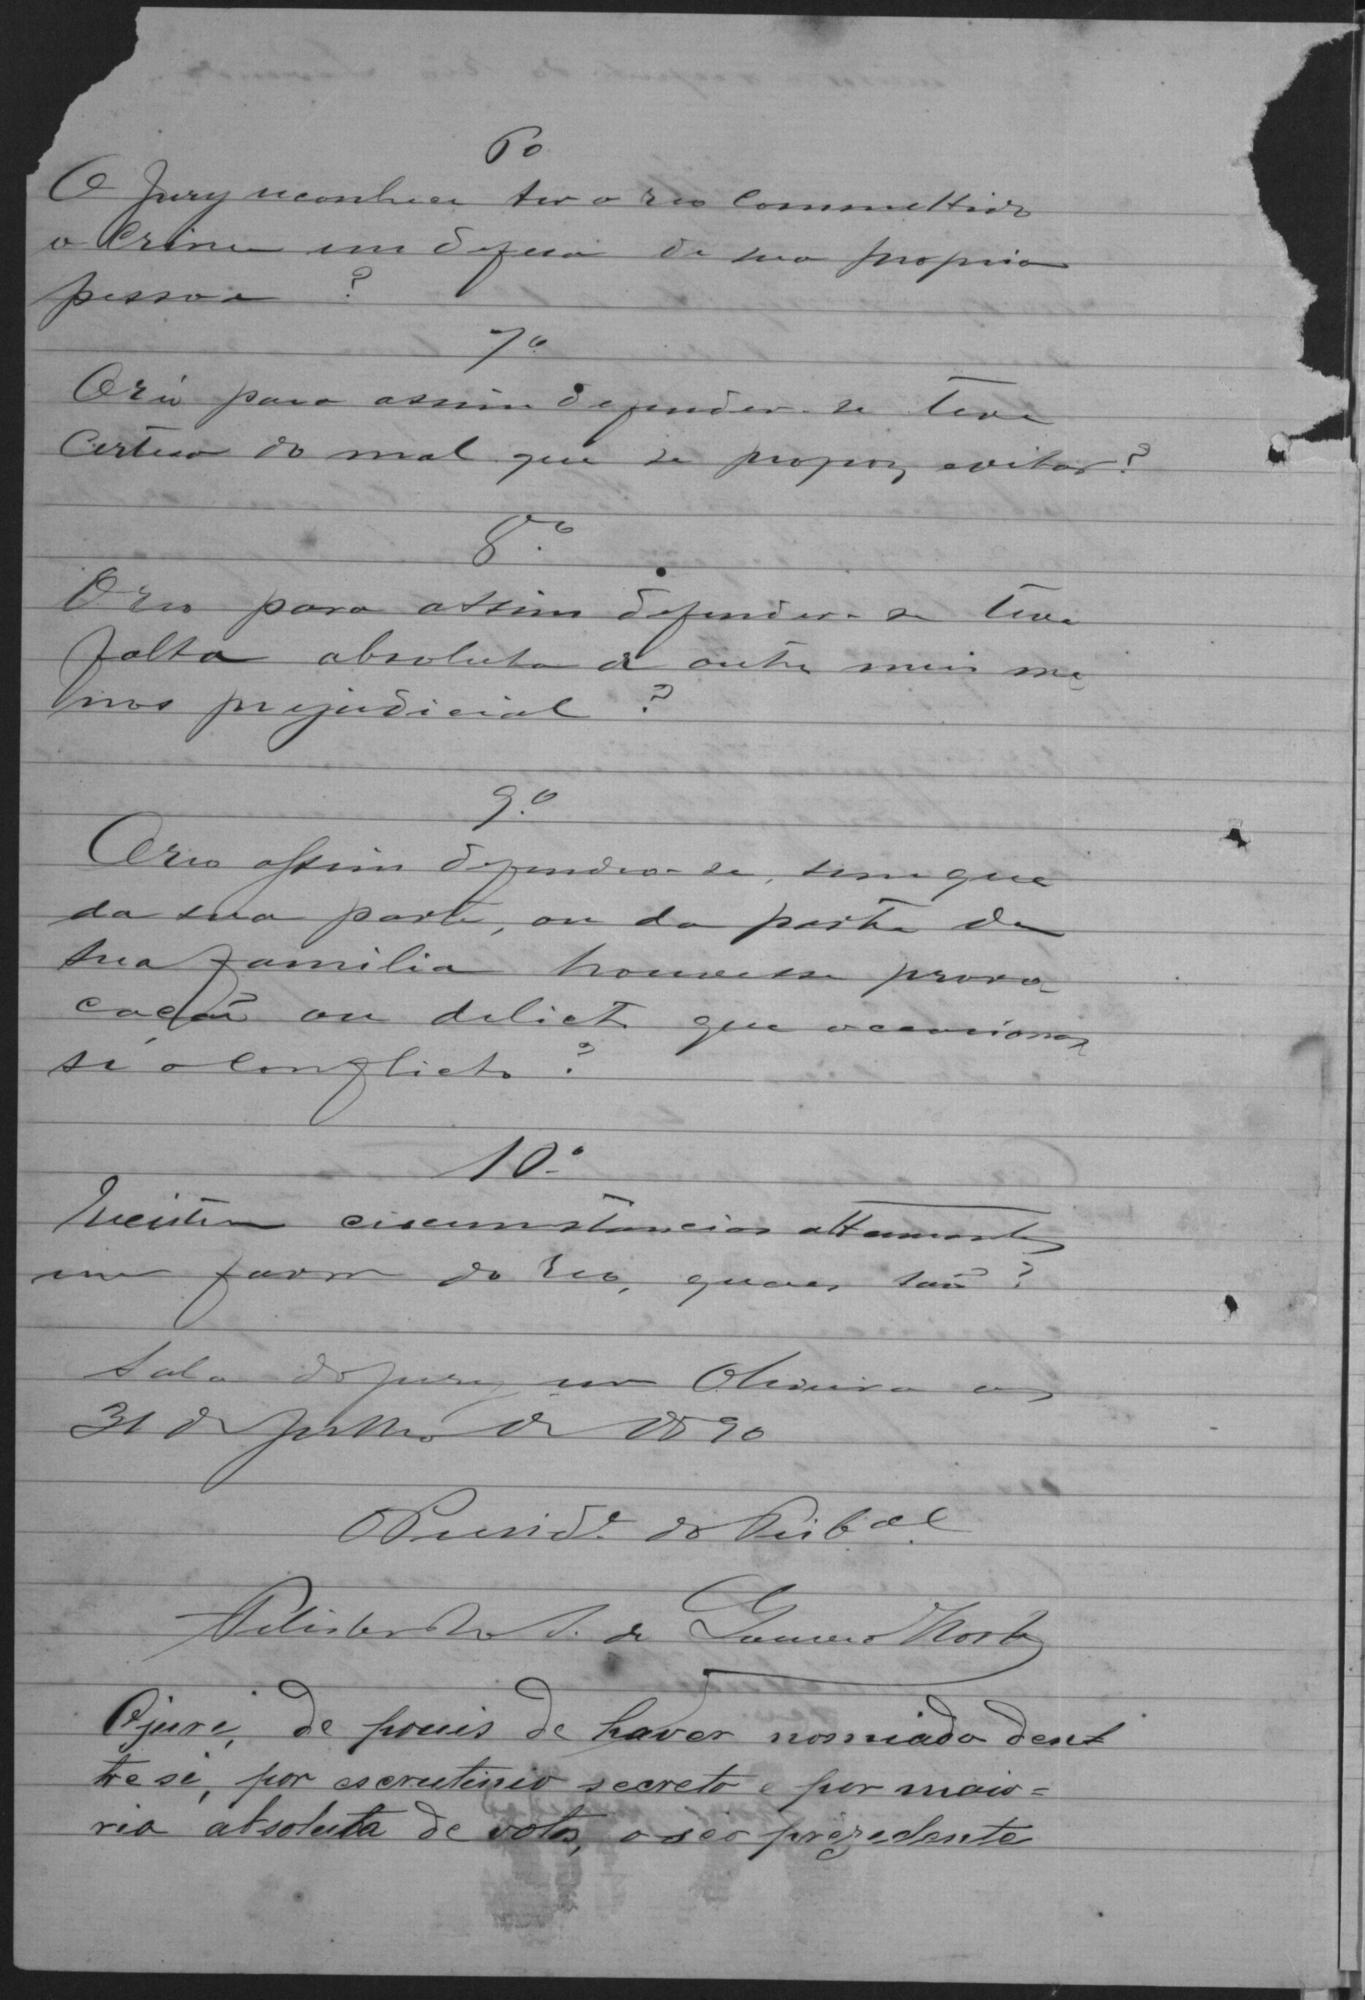 6º
O Jury reconhece ter o reo commettido
o crime em defesa de sua propria
pessoa ?
7º
O réo para assim defender-se teve
certesa do mal que se propoz evitar?
8º
O reo para assim defender-se teve
falta absoluta de outro meio me
nos prejudicial ?
9º
O reo assim defendeo-se, sem que
da sua parte, ou da parte de
sua familia houvesse provo
cação ou delicto que occasionas
se o conflicto ?
10º
Existem circumstancias attenuantes
em favor do reo, quaes são ?
Sala do jury em Oliveira aos
31 de Julho de 1890
O Presid.e do Trib.al
de
O jure, de pouis de haver nomiado dent
tre si, por escrutinio secreto e por maio=
ria absoluta de votos, o seo prezedente